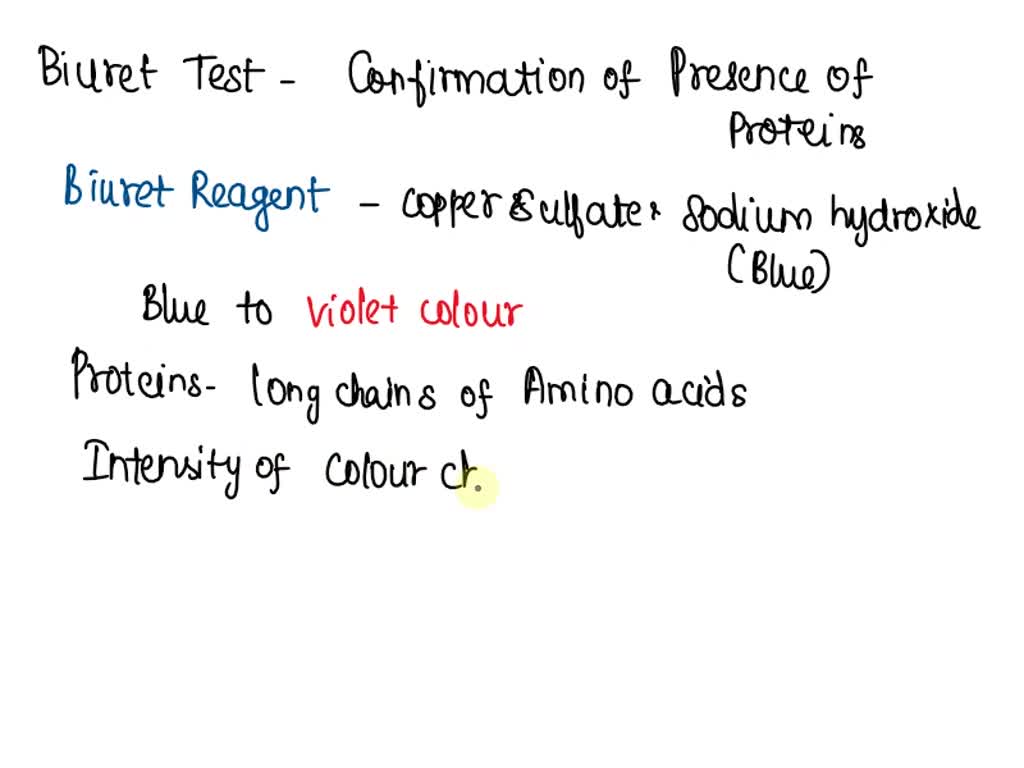 Biuret Test - Confirmation of Presence of
Proteins
Biuret Reagent - copper sulfate & sodium hydroxide
(Blue)
Blue to violet colour
Proteins- long chains of Amino acids
Intensity of colour ch